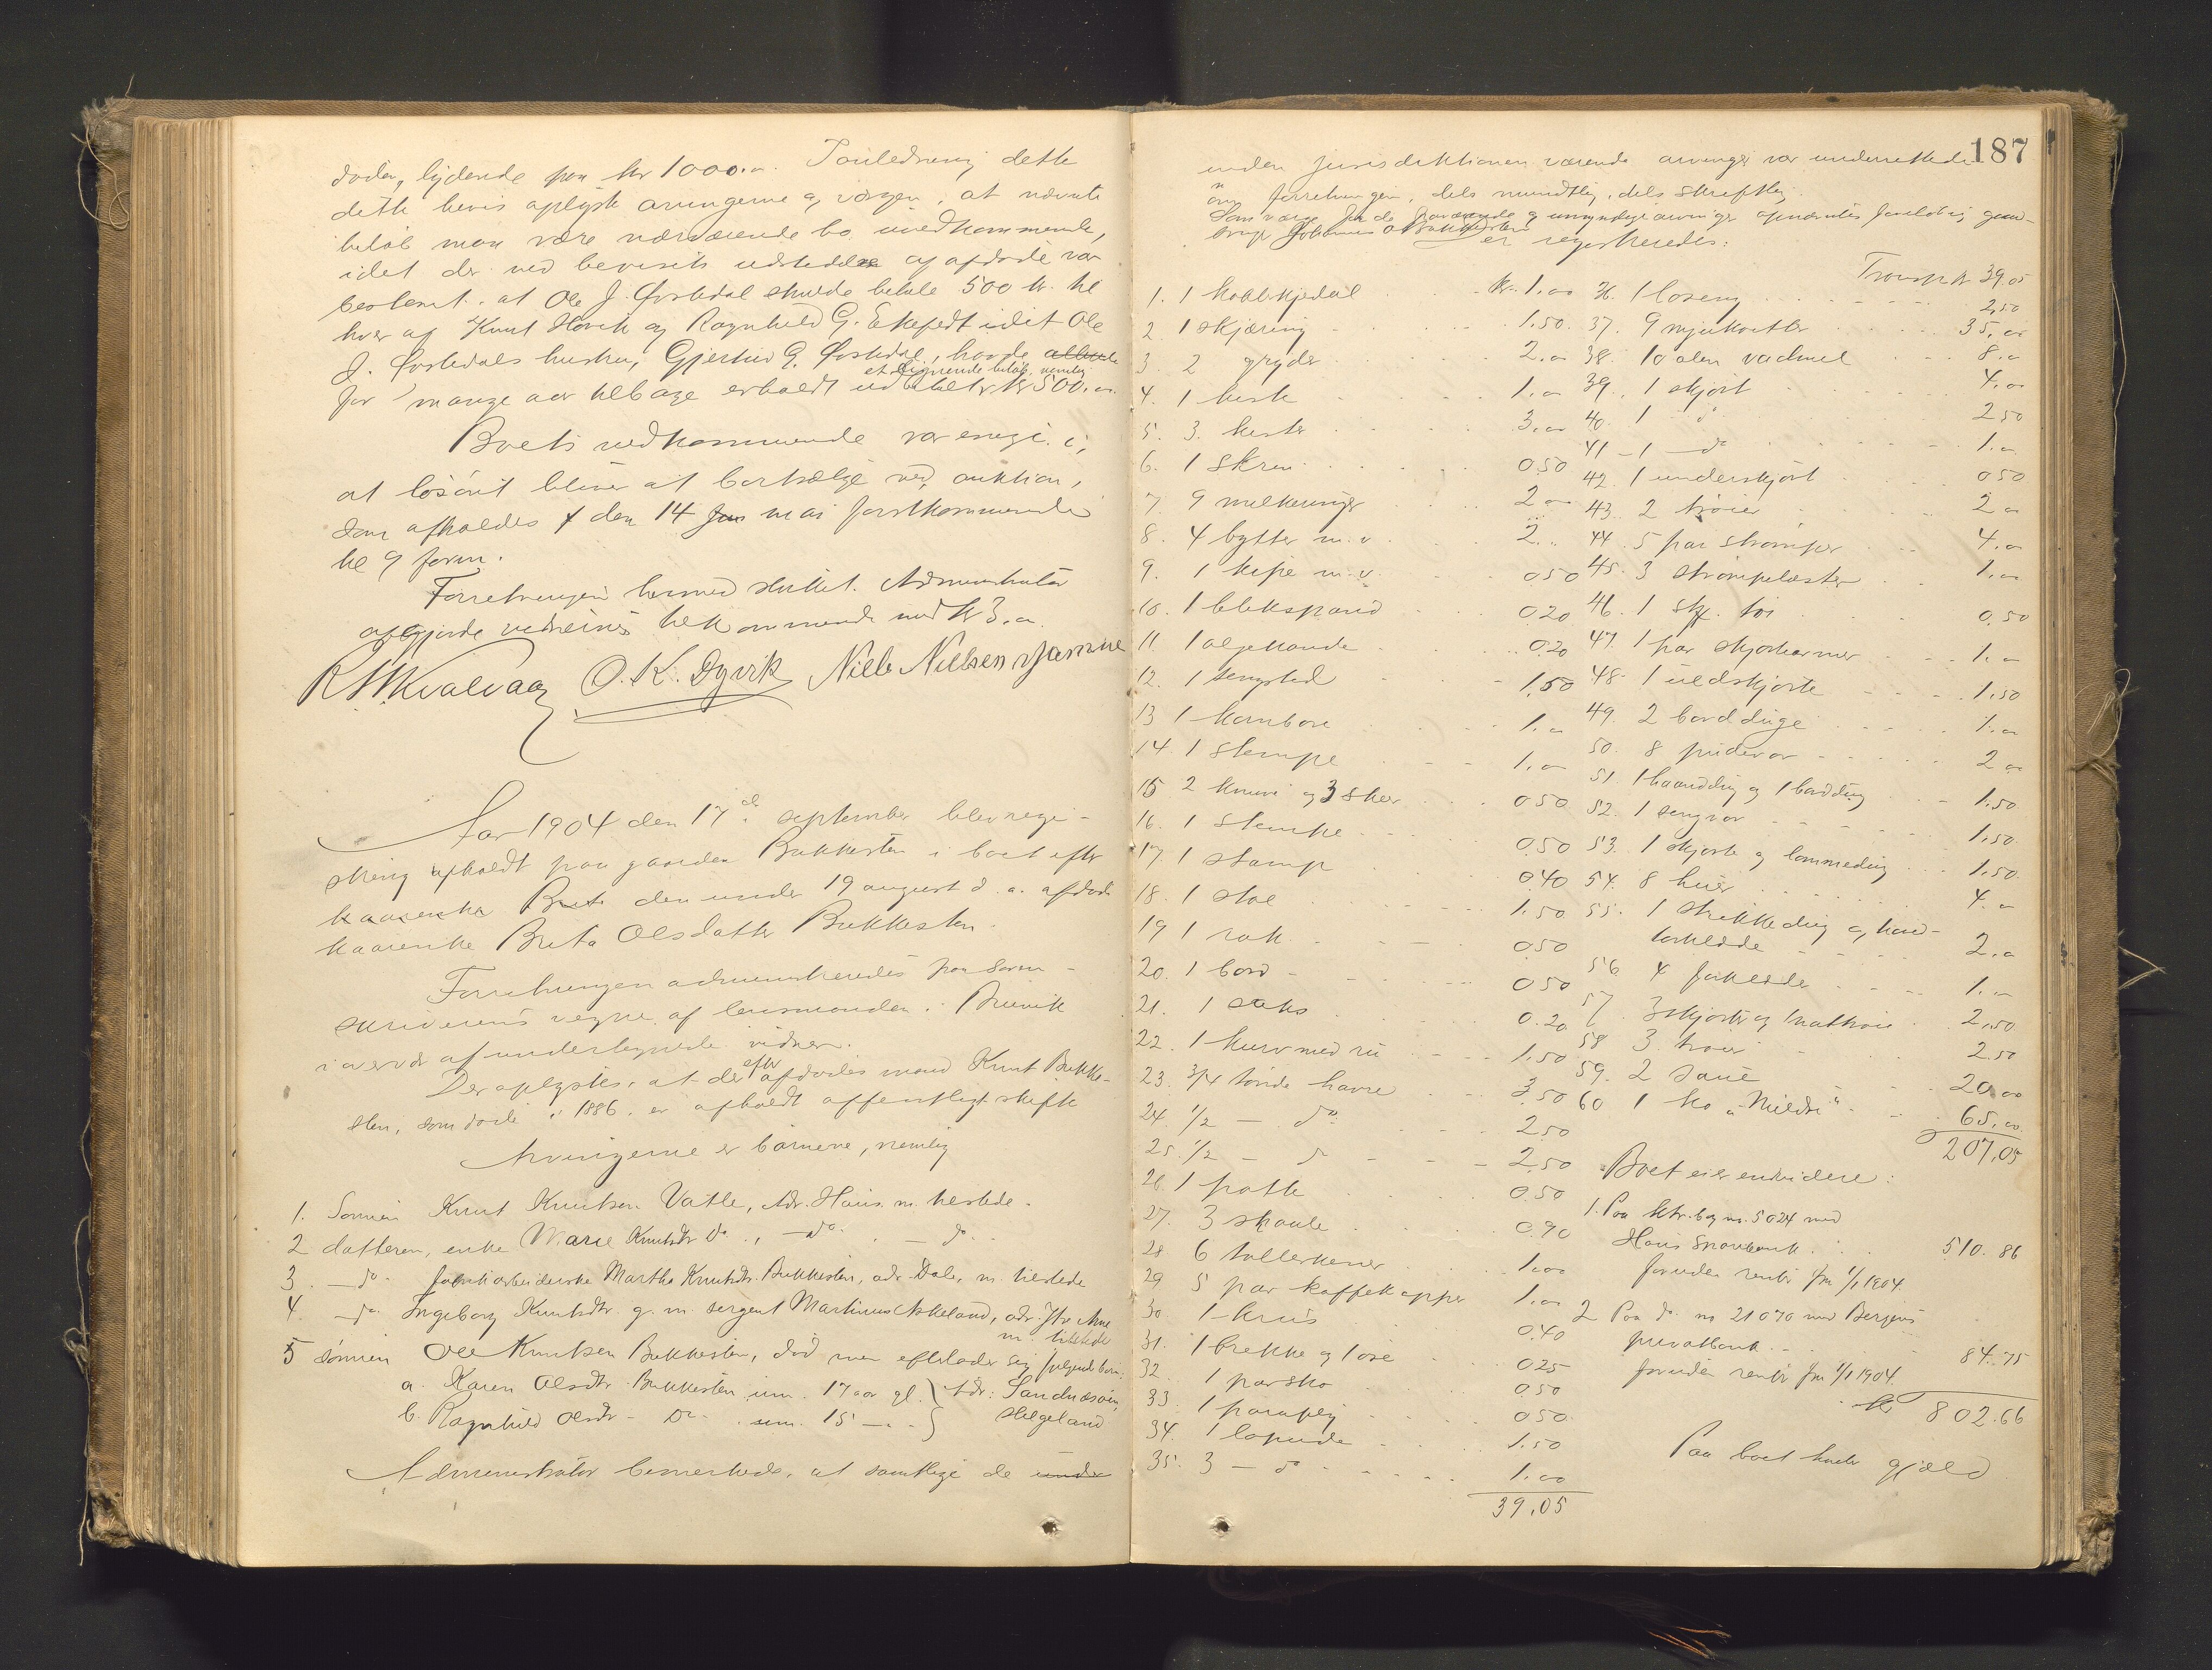 døde, lydende paa kr 1000.00. I anledning dette
dette bevis oplyste arvingerne og værgen, at nævnte
beløb maa være nærværende bo uvedkommende,
idet der ved bevisets udstedelse af afdøde var
bestemt, at Ole J. Østedal skulde betale 500 kr. til
hver af Knut Hovik og Ragnhild G. Ekefedt idet Ole
J. Østedals hustru, Gjertrud G. Østedal, havde allerede
et lignende beløb, nemlig
for mange aar tilbage erholdt udbetalt kr 500.00.
Boets vedkommende var enige i,
at løsøret bliver at bortsælge ved auktion,
som afholdes den 14 Jun mai førstkommende
kl 9 form.
Forretningen hermed sluttet. Administrator
afgjorde vidnernes tilkommende med kr 3.00.
R. M. Kvalvaag O. K. Dyvik Niels Nielsen Hjarnne
Aar 1904 den 17de september blev regi-
strering afholdt paa gaarden Bukkesten i boet efter
kaarenke Brita den under 19 august d. a. afdøde
kaarenke Brita Olsdatter Bukkesten.
Forretningen administreredes paa Soren-
skriverens vegne af lensmanden i Bruvik
i overvær af undertegnede vidner.
Der oplystes, at der efter afdødes mand Knut Bukke-
sten, som døde i 1886, er afholdt offentligt skifte
Arvingerne er børnene, nemlig
1. Sønnen Knut Knutsen Vatle, Adr. Haus m. herstede.
2 datteren, enke Marie Knutsdtr do., —do. — do.
3. —do. fabrikarbeiderske Martha Knutsdtr. Bukkesten, adr. Dale, m herstede
4. —do. Ingeborg Knutsdtr. g. m. sergent Martinus Askeland, adr. Ytre Arne
m. tilstede
5 sønnen Ole Knutsen Bukkesten, død men efterlader sig følgende børn:
a. Karen Olsdtr. Bukkesten um. 17 aar gl. } Adr: Sandnæsøen,
b. Ragnhild Olsdtr - Do - . um. 15 —.- } Helgeland
Administrator bemerkede, at samtlige de under
187
inden jurisdiktionen værende arvinger var underrettede
om forretningen, dels mundtlig, dels skriftlig.
Som værge for de fraværende og umyndige arvinger opnævntes foreløbig gaard-
bruger Johannes O Bukkesten
er registreredes:
1. 1 kobbkjedel kr. 1.00
2. 1 skjæring 1.50.
3. 2 gryder 2.00
4. 1 kiste 1.00
5. 3. kister 3.00
6. 1 skrin 0.50
7 9 melkeringer 2.00
8. 4 bytter m.v. 2.00
9. 1 kipe m.v. 0.50
10. 1 blikspand 0.20
11. 1 oljekande 0.20
12. 1 sengsted 1.50
13 1 kornbøre 1.00
14. 1 stempe 1.00
15 2 knive og 3 skeer 0.50
16. 1 stempe 0.50
17. 1 stamp 0.40
18. 1 stol 1.50
19 1 rok 0.50
20. 1 bord 0.50
21. 1 saks 0.20
22. 1 kurv med ru 1.50
23. 3/4 tønde havre 3.50
24. 1/2 — do 2.50
25. 1/2 — do 2.50
26 1 potte 0.50
27. 3 skaale 0.90
28 6 tallerkener 1.00
29 5 par kaffekopper 1.00
30 1 krus 0.40
31. 1 brekke og 1 øse 0.25
32. 1 par sko 0.50
33 1 paraply 0.50
34. 1 lopude 1.50
35. 3 — do 1.00
39.05
Transp. kr 39.05
36. 1 loseng 2.50
37. 9 mjukvitler 35.00
38. 10 alen vadmel 8.00
39. 1 skjørt 4.00
40. 1 do 2.50
41 – 1 — do 1.00
42. 1 underskjørt 0.50
43. 2 trøier 2.00
44. 5 par strømper 4.00
45. 3 strømpelæster 1.00
46. 1 stk. tøi 0.50
47. 1 par skjorteermer 1.00
48. 1 uldskjorte 1.50
49. 2 bordduge 1.00
50. 8 pudevar 2.00
51. 1 haandklæ og 1 borddug 1.50
52. 1 sengvar 1.50
53. 1 skjorte og lommedug 1.50
54. 8 huer 4.00
55. 1 strikkedug og hoved-
tørklæde 2.00
56 4 forklæde 1.00
57. 3 skjorter og 1 nattrøie 2.50
58 3. trøier 2.50
59. 2 saue 20.00
60 1 ko "Mildri" 65.00
207.05
Boet eier enhvidere:
1. Paa ktr. bog no. 5024 med
Haus Sparebank 510.86
foruden renter fra 1/1 1904.
2 Paa do. no 21070 med Bergens
privatbank 84.75
foruden renter fra 1/1 1904.
kr 802.66
Paa boet hviler gjæld